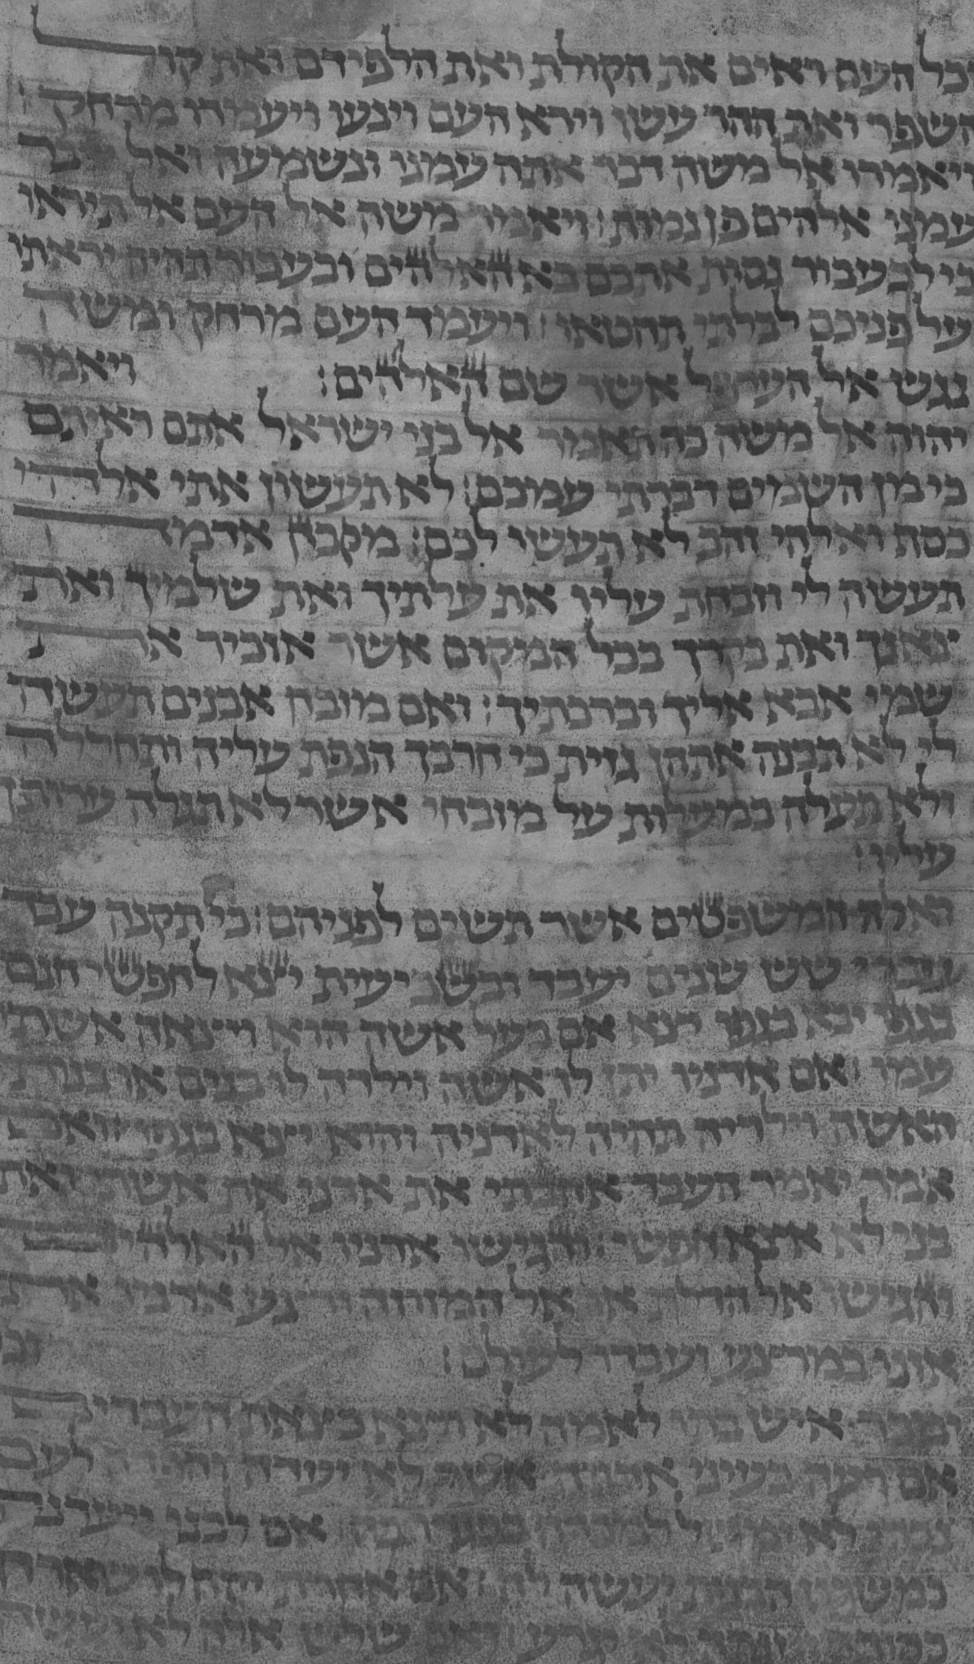 וכל העם ראים את הקולת ואת הלפידם ואת קול
השפר ואת ההר עשן וירא העם וינעו ויעמדו מרחק :
ויאמרו אל משה דבר אתה עמנו ונשמעה ואל ידבר
עמנו אלהים פן נמות : ויאמר משה אל העם אל תיראו
כי לבעבור נסות אתכם בא האלהים ובעבור תהיה יראתו
על פניכם לבלתי תחטאו : ויעמד העם מרחק ומשה
נגש אל הערפל אשר שם האלהים : ויאמר
יהוה אל משה כה תאמר אל בני ישראל אתם ראיתם
כי מן השמים דברתי עמכם : לא תעשון אתי אלהי
כסף ואלהי זהב לא תעשו לכם : מזבח אדמה
תעשה לי וזבחת עליו את עלתיך ואת שלמיך ואת
צאנך ואת בקרך בכל המקום אשר אזכיר את
שמי אבא אליך וברכתיך : ואם מזבח אבנים תעשה
לי לא תבנה אתהן גזית כי חרבך הנפת עליה ותחללה
ולא תעלה במעלות על מזבחי אשר לא תגלה ערותך
עליו :
האלה המשפטים אשר תשים לפניהם : כי תקנה עבד
עברי שש שנים יעבד ובשביעית יצא לחפשי חנם
בגפו יבא בגפו יצא אם בעל אשה הוא ויצאה אשתו
עמו : אם אדניו יתן לו אשה וילדה לו בנים או בנות
האשה וילדיה תהיה לאדניה והוא יצא בגפו : ואם
אמר יאמר העבד אהבתי את אדני את אשתי ואת
בני לא אצא חפשי : והגישו אדניו אל האלהים
והגישו אל הדלת או אל המזוזה ורצע אדניו את
אזנו במרצע ועבדו לעולם : וכי
ימכר איש בתו לאמה לא תצא כצאת העבדים
אם רעה בעיני אדניה אשר לא יעדה והפדה לעם
נכרי לא ימשל למכרה בבגדו בה : אם לבנו ייעדנה
כמשפט הבנות יעשה לה : אם אחרת יקח לו שארה
כסותה לא יגרע : ואם שלש אלה לא יעשה